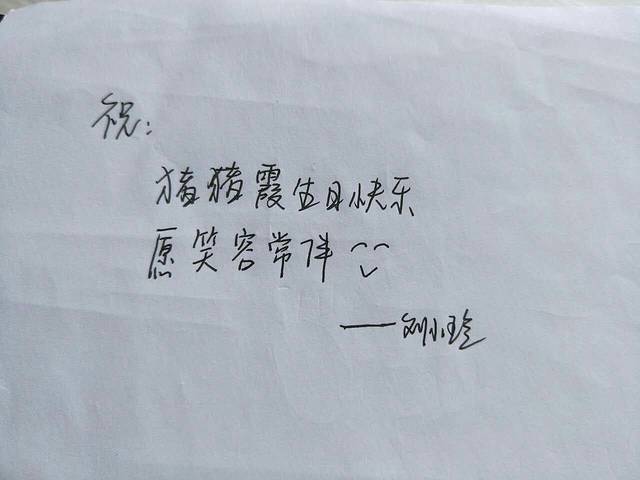 祝:
猪猪霞生日快乐
愿笑容常伴
——刘小玲